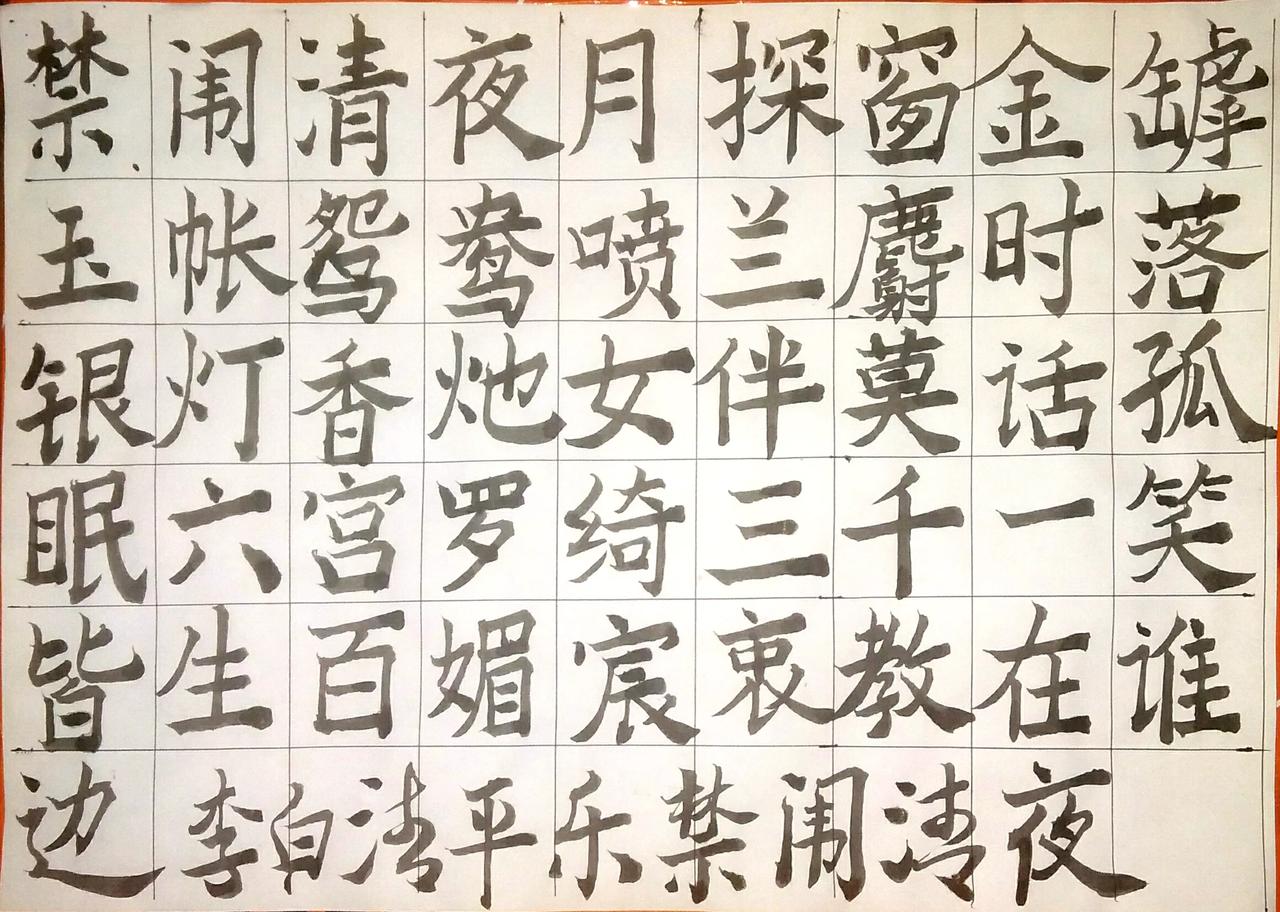 禁闱清夜月探窗金罅
玉帐鸳鸯喷兰麝时落
银灯香灺女伴莫话孤
眠六宫罗绮三千一笑
皆生百媚宸衷教在谁
边 李白清平乐禁闱清夜